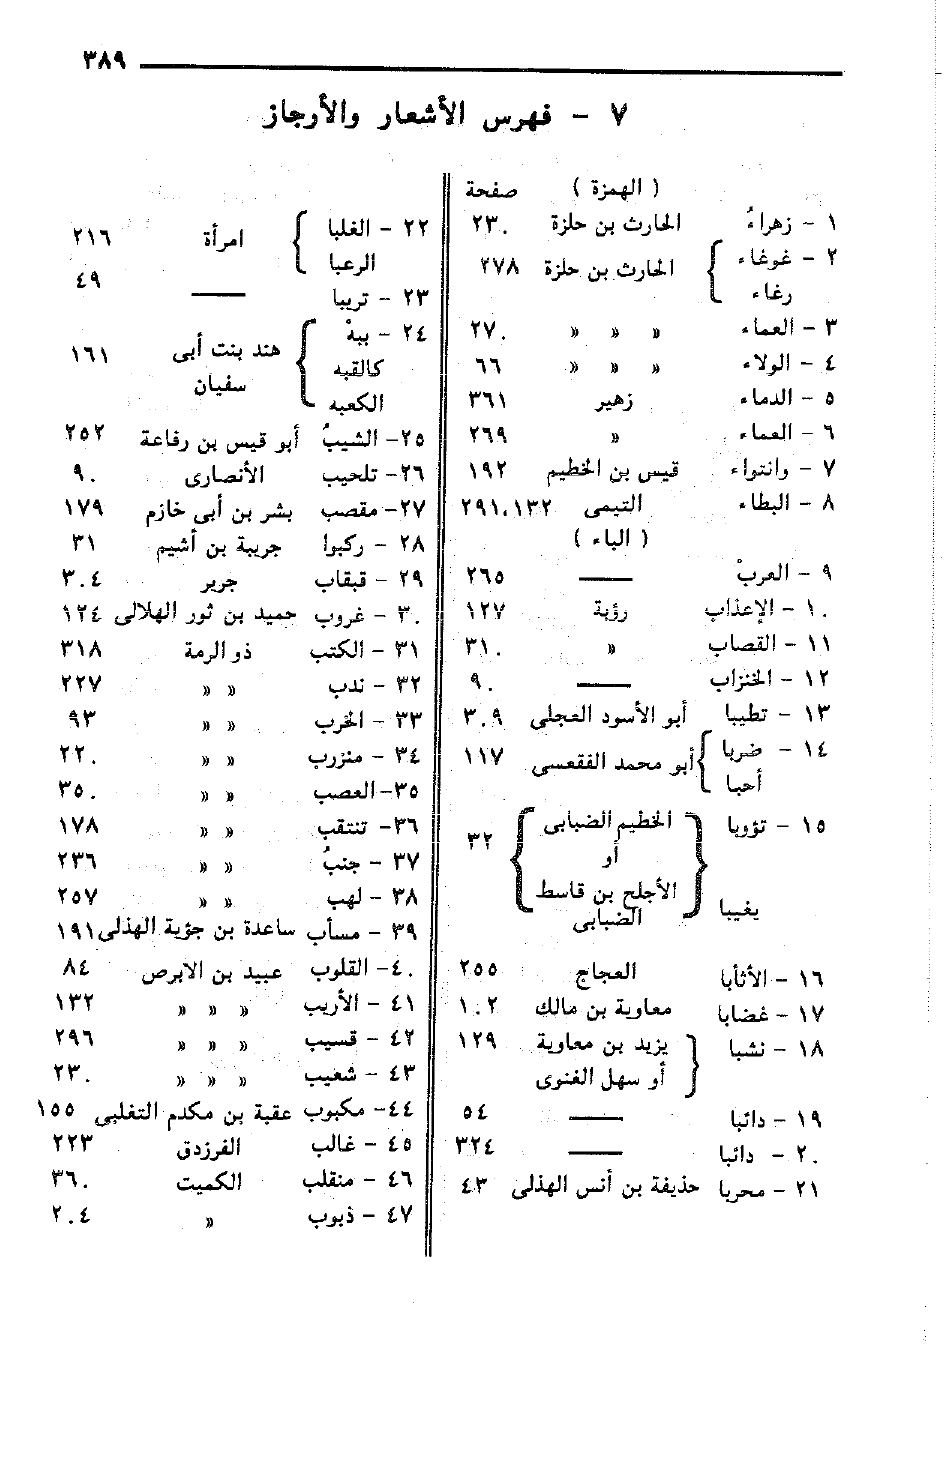 ٣٨٩
٧ - فهرس الأشعار والأرجاز
( الهمزة ) صفحة
١ - زهراءُ الحارث بن حلزة ٢٣٠
٢ - غوغاء { الحارث بن حلزة ٢٧٨
رغاء
٣ - العماء » » » ٢٧٠
٤ - الولاء » » » ٦٦
٥ - الدماء زهير ٣٦١
٦ - العماء » ٢٦٩
٧ - وانتواء قيس بن الخطيم ١٩٢
٨ - البطاء التيمى ٢٩١،١٣٢
( الباء )
٩ - العربْ ـــــ ٢٦٥
١٠ - الإعذاب رؤبة ١٢٧
١١ - القصاب » ٣١٠
١٢ - الخنزاب ـــــ ٩٠
١٣ - تطيبا أبو الأسود العجلى ٣٠٩
١٤ - ضربا { أبو محمد الفقعسى ١١٧
أحبا
١٥ - تؤوبا } الخطيم الضبابى { ٣٢
أو
يغيبا الأجلح بن قاسط
الضبابى
١٦ - الأثأبا العجاج ٢٥٥
١٧ - غضابا معاوية بن مالك ١٠٢
١٨ - نشبا } يزيد بن معاوية ١٢٩
أو سهل الغنوى
١٩ - دائبا ـــــ ٥٤
٢٠ - دائبا ـــــ ٣٢٤
٢١ - محربا حذيفة بن أنس الهذلى ٤٣
٢٢ - الغلبا { امرأة ٢١٦
الرعبا
٢٣ - تريبا ـــــ ٤٩
٢٤ - ببهْ { هند بنت أبى ١٦١
كالقبه سفيان
الكعبه
٢٥- الشيبُ أبو قيس بن رفاعة ٢٥٢
٢٦- تلحيب الأنصارى ٩٠
٢٧- مقصب بشر بن أبى خازم ١٧٩
٢٨ - ركبوا جريبة بن أشيم ٣١
٢٩ - قبقاب جرير ٣٠٤
٣٠ - غروب حميد بن ثور الهلالى ١٢٤
٣١ - الكتب ذو الرمة ٣١٨
٣٢ - ندب » » ٢٢٧
٣٣ - الخرب » » ٩٣
٣٤ - منزرب » » ٢٢٠
٣٥- العصب » » ٣٥٠
٣٦- تنتقب » » ١٧٨
٣٧ - جنبُ » » ٢٣٦
٣٨ - لهب » » ٢٥٧
٣٩ - مسأب ساعدة بن جؤية الهذلى ١٩١
٤٠- القلوب عبيد بن الابرص ٨٤
٤١ - الأريب » » » ١٣٢
٤٢ - قسيب » » » ٢٩٦
٤٣ - شعيب » » » ٢٣٠
٤٤- مكبوب عقبة بن مكدم التغلبى ١٥٥
٤٥ - غالب الفرزدق ٢٢٣
٤٦ - منقلب الكميت ٣٦٠
٤٧ - ذبوب » ٢٠٤